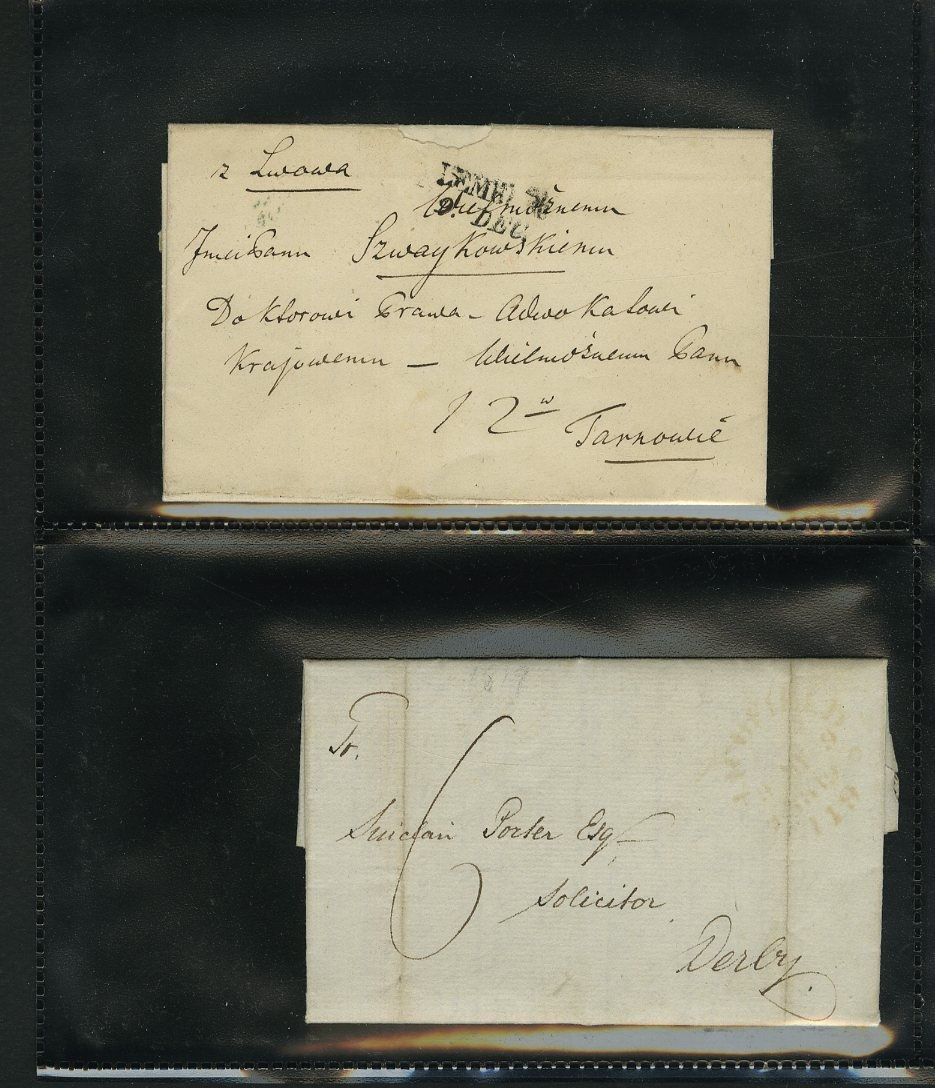 z Lwowa
LEMBERG
Wielmożnemu
D. DEC.
JmciPanu Szwaykowskiemu
Doktorowi Prawa – Adwokatowi
Krajowemu – Wielmożnemu Panu
w
Tarnowie
1819
To.
6
Sinclair Porter Esqr
Solicitor
Derby.